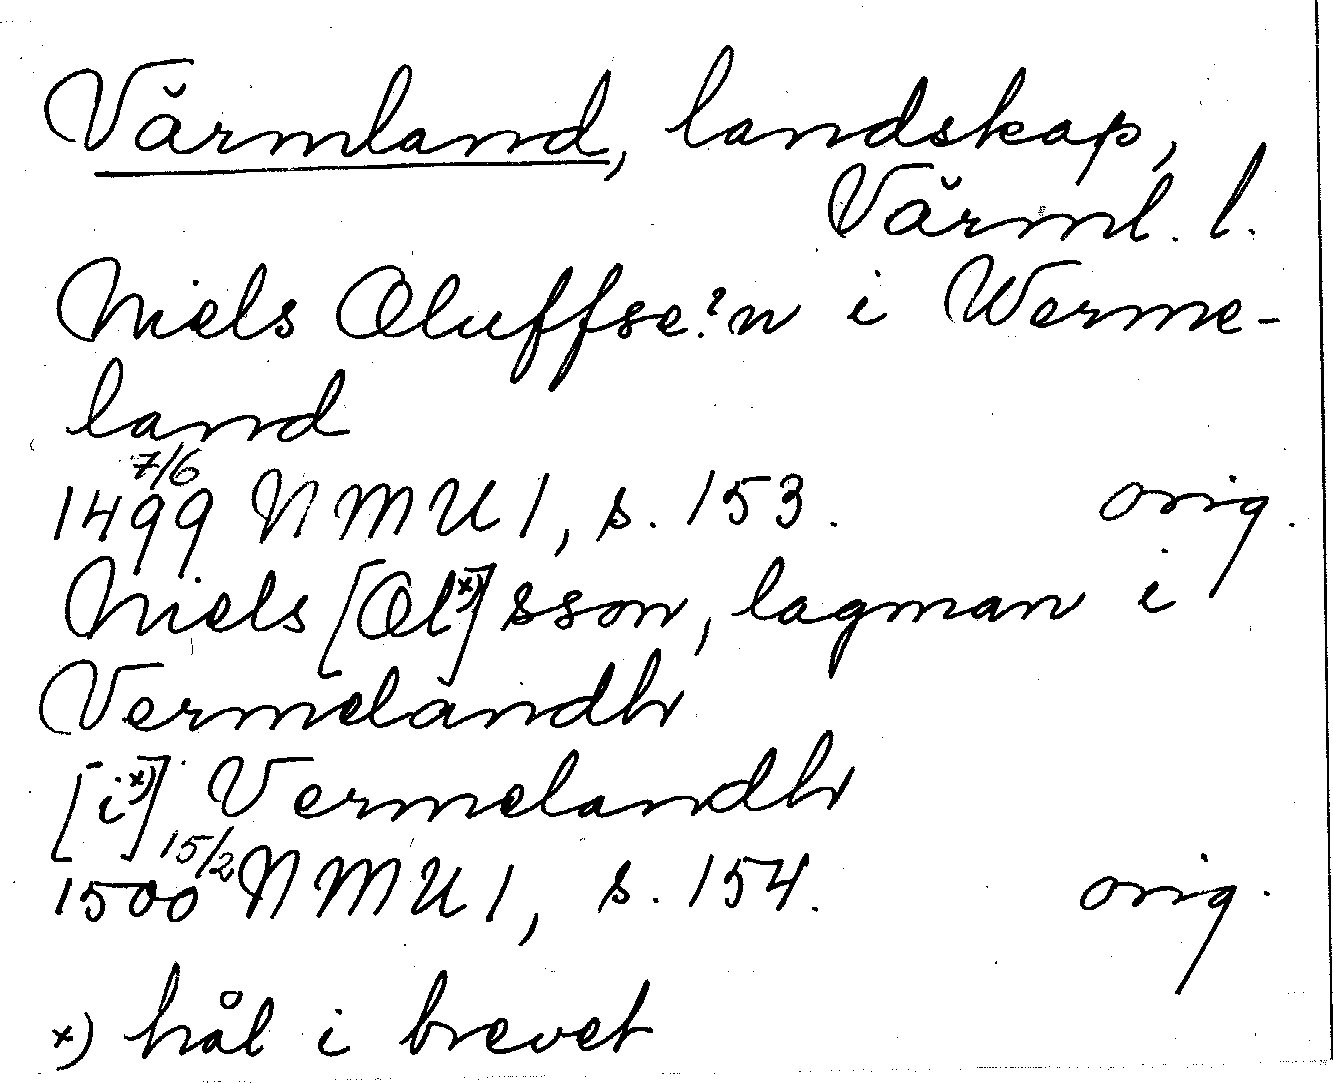 Värmland, landskap,
Värml. l.
Niels Oluffse?n i Werme-
land
7/6
1499 NMU 1, s. 153. orig.
Niels [Ol x)] sson, lagman i
Vermelandh
[i x)] Vermelandh
15/2
1500 NMU 1, s. 154. orig.
x) hål i brevet